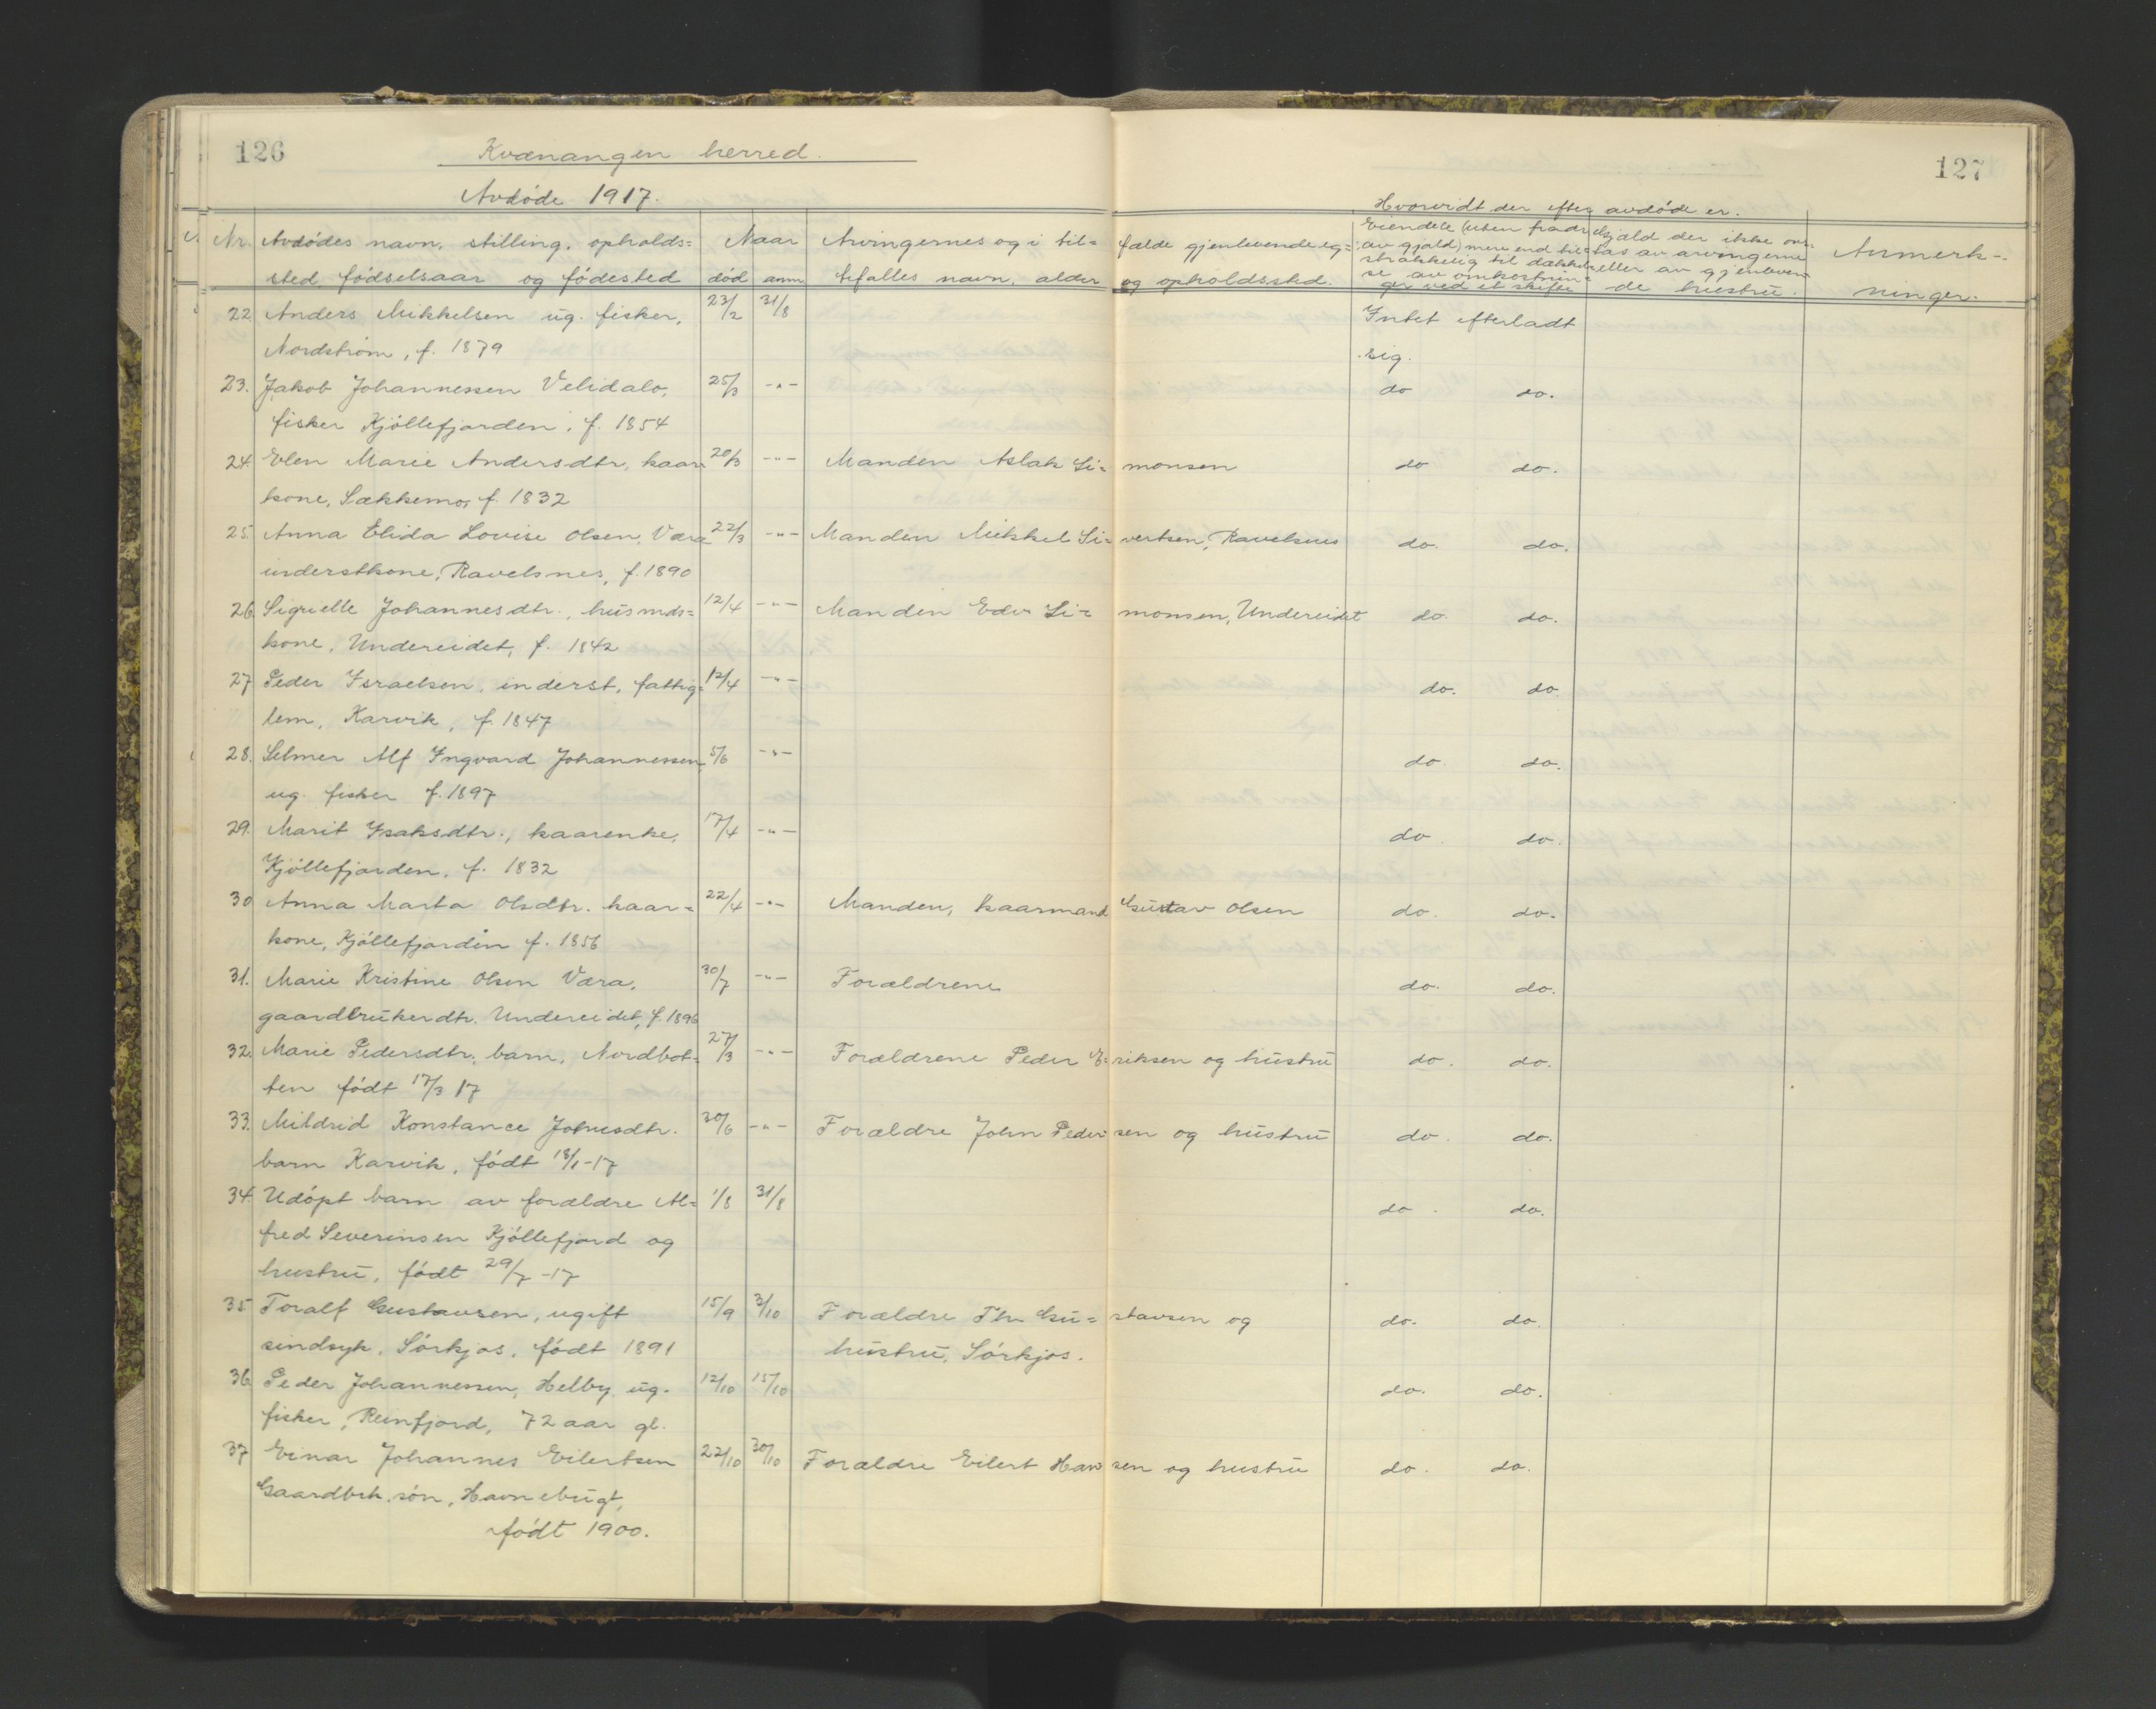 126
Kvænangen herred.
127
Avdøde 1917.
Hvorvidt der efter avdøde er.
Nr. Avdødes navn, stilling, opholds= Naar Arvingernes og i til= fælde gjenlevende eg= Eiendele (uten fradrag av gjæld) mere end til= strækkelig til dækkel= se av omkostnin= ger ved et skifte Gjæld der ikke over= tas av arvingerne eller av gjenleven= de hustru. Anmerk-
sted fødselsaar og fødested død anm. tefælles navn, alder og opholdssted. ninger.
22 Anders Mikkelsen ug. fisker, 23/2 31/8 Intet efterladt
Nordstrøm, f. 1879 sig.
23. Jakob Johannessen Velidalo, 25/3 -"- do do.
fisker Kjøllefjorden, f. 1854
24. Elen Marie Andersdtr, kaar= 20/3 -"- Manden Aslak Si= monsen do do.
kone, Sækkemo, f. 1832
25. Anna Elida Lovise Olsen, Væra 22/3 -"- Manden Mikkel Si= vertsen, Ravelsnes do. do.
inderstkone, Ravelsnes, f. 1890
26. Sigrielle Johannesdtr., husmds= 12/4 -"- Manden Edv. Si= monsen, Undereidet do do.
kone, Undereidet, f. 1842
27 Peder Israelsen, inderst, fattig= 12/4 -"- do. do
lem, Karvik, f. 1847
28. Selmer Alf Ingvard Johannessen 5/6 -"- do. do.
ug. fisker f. 1897
29. Marit Isaksdtr., kaarenke, 17/4 -"- do. do.
Kjøllefjorden, f. 1832
30 Anna Marta Olsdtr. kaar= 22/4 -"- Manden, kaarmand Gustav Olsen do. do.
kone, Kjøllefjorden f. 1856
31. Marie Kristine Olsen Væra, 30/7 -"- Forældrene do. do.
gaardbrukerdtr. Undereidet, f. 1896
32. Marie Pedersdtr. barn, Nordbot= 27/3 -"- Forældrene Peder E= riksen og hustru do. do.
ten født 17/3 17
33. Mildrid Konstance Johnsdtr. 30/6 -"- Forældre John Peder sen og hustru do. do.
barn Karvik, født 18/1-17
34. Udøpt barn av forældre Al= 1/8 31/8 do. do.
fred Severinsen Kjøllefjord og
hustru, født 29/7-17
35 Toralf Gustavsen, ugift 15/9 3/10 Forældre Th. Gu= stavsen og do. do.
sindsyk, Sørkjos, født 1891 hustru, Sørkjos.
36. Peder Johannessen, Helby, ug. 12/10 15/10 do. do.
fisker, Reinfjord, 72 aar gl.
37 Einar Johannes Eilertsen 22/10 30/10 Forældre Eilert Han sen og hustru do. do.
Gaardbrk. søn, Havnebugt,
født 1900.